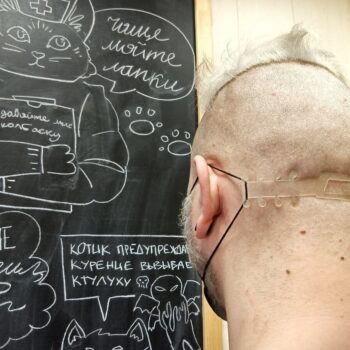 чаще
мойте
лапки
давайте мне
колбаску
КОТИК ПРЕДУПРЕЖДА
КУРЕНИЕ ВЫЗЫВАЕ
КТУЛУХУ